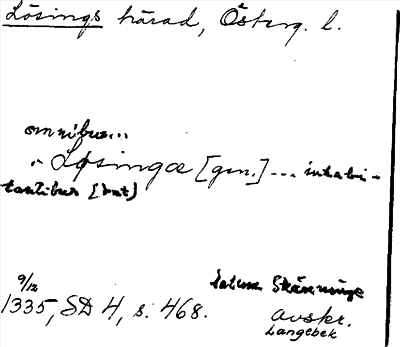 Lösings härad, Österg. l.
omnibus...
" Løsingæ [gen.] ... inhabi-
tantibus [dat]
datum Skänninge
9/12
1335, SD 4, s. 468.
avskr.
Langebek